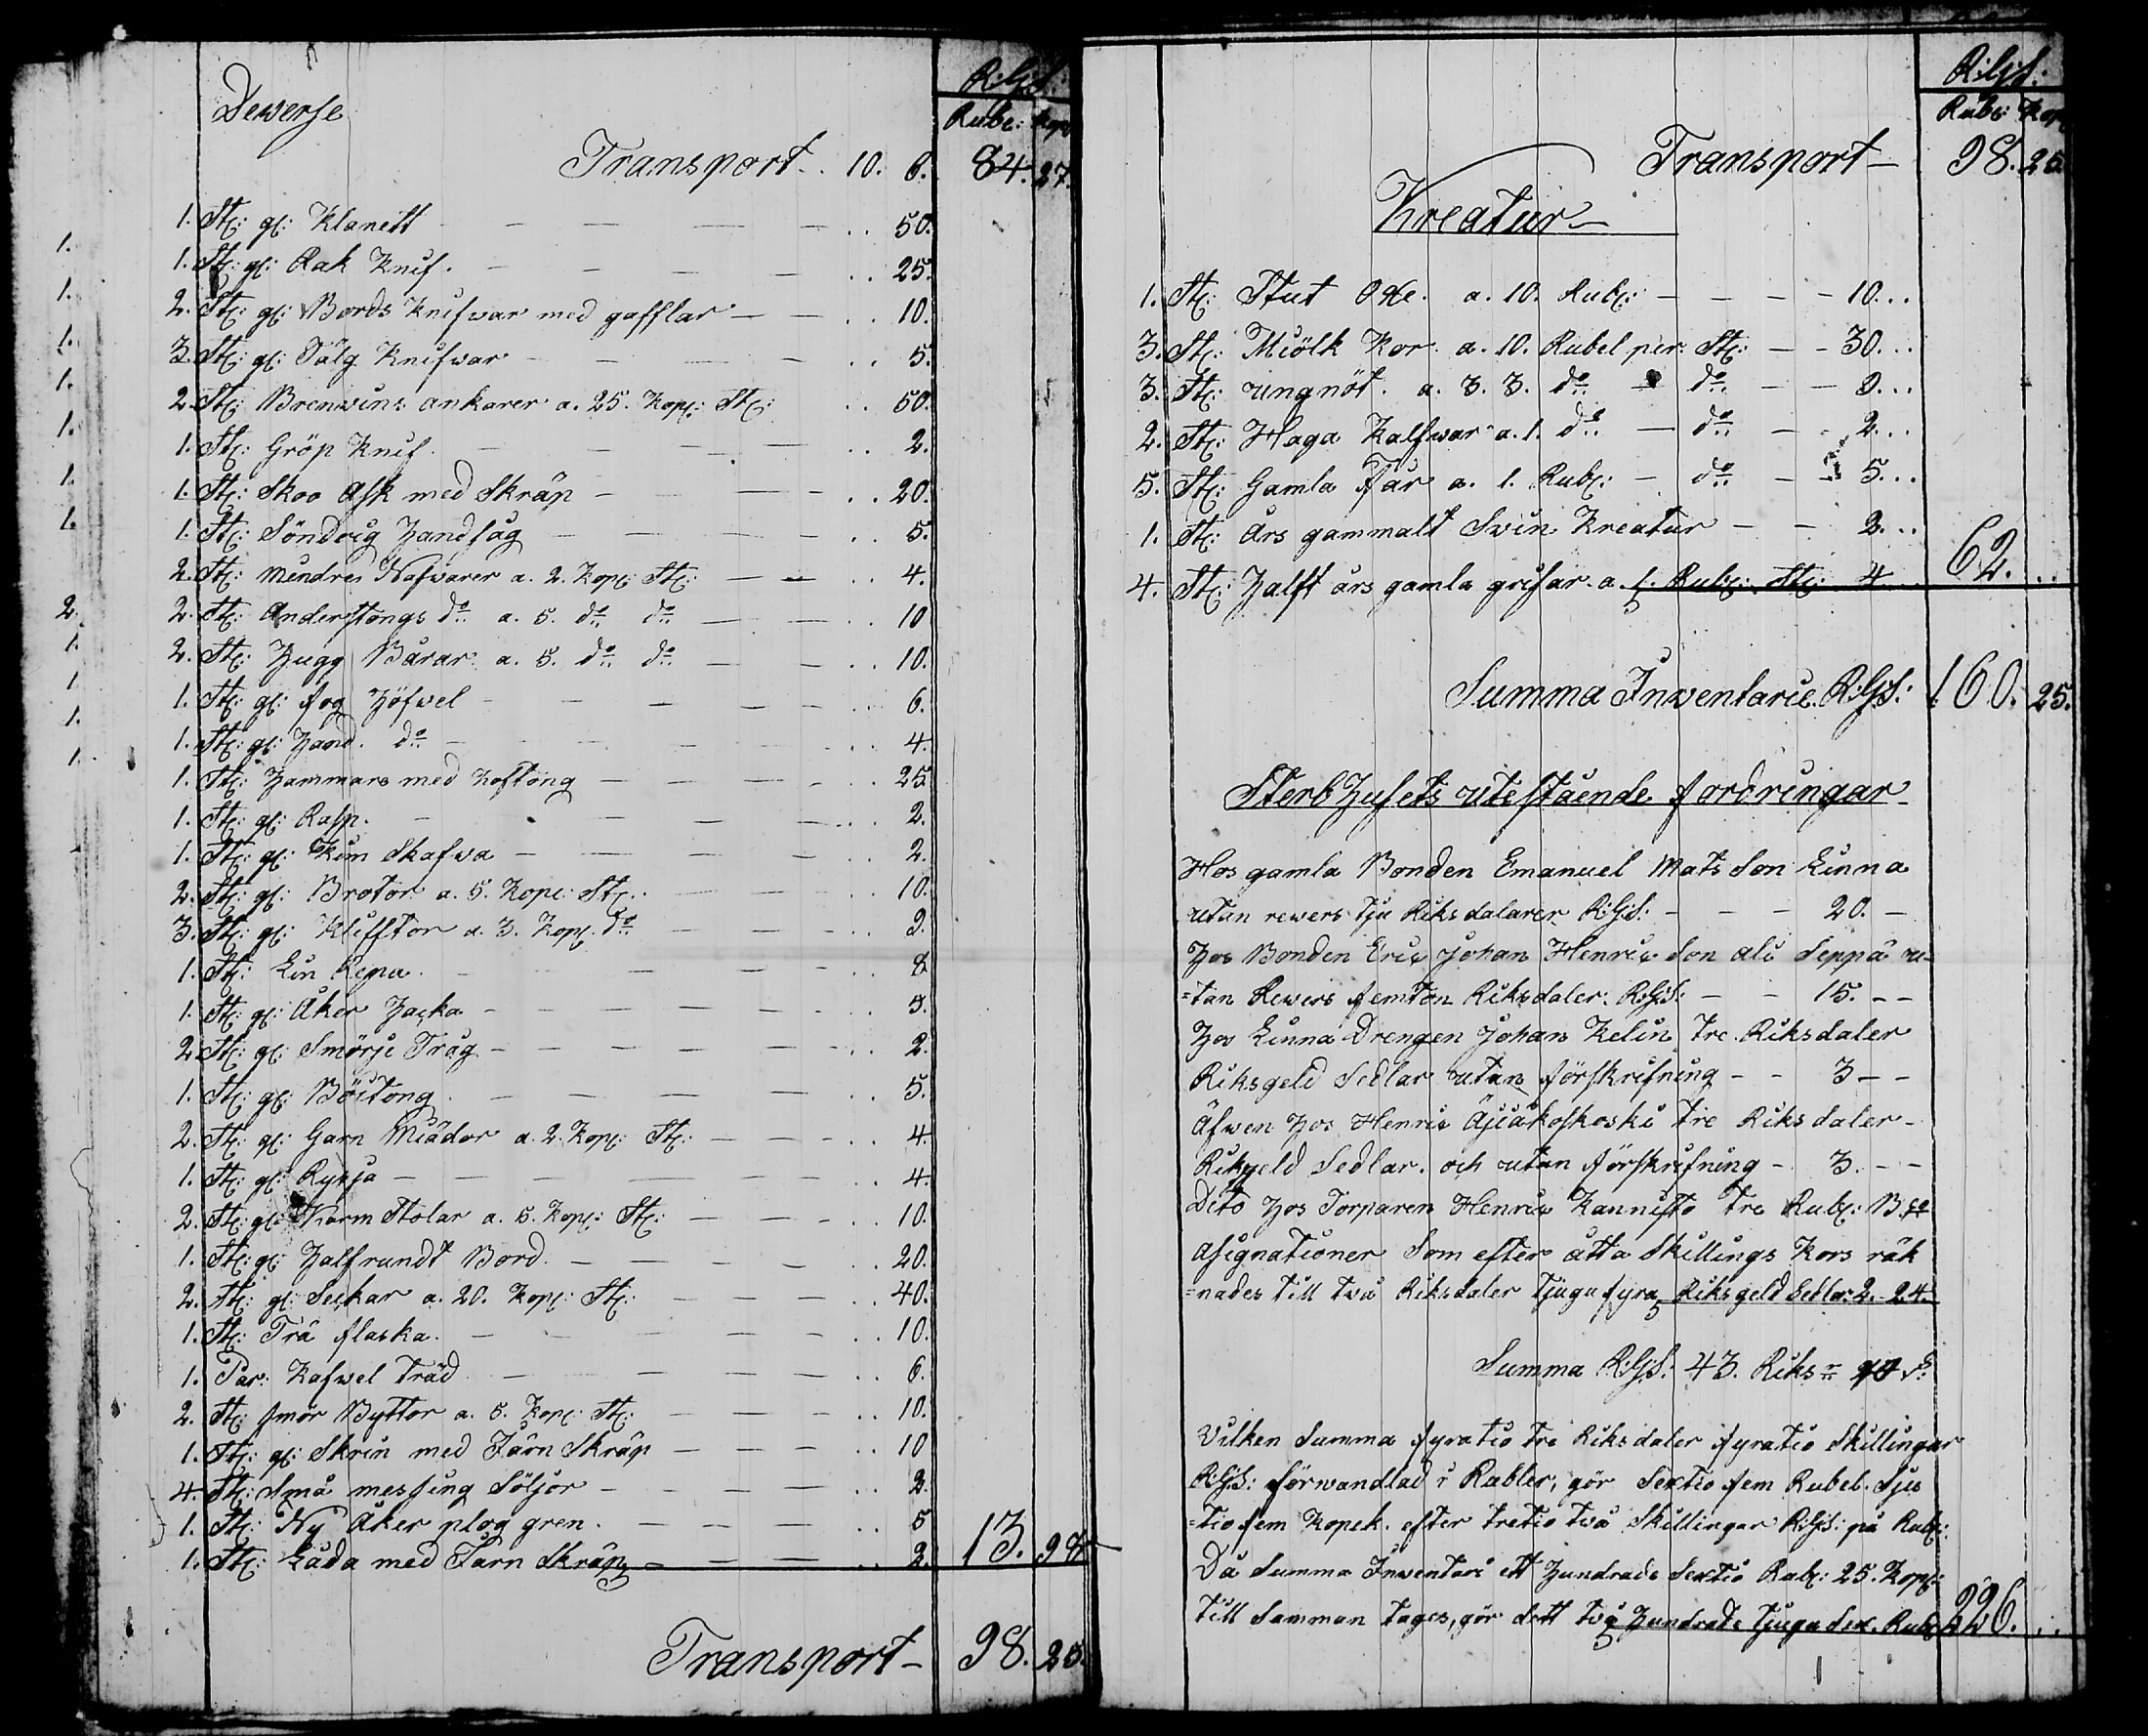 1.
1.
1.
1.
1.
1.
1.
2.
1.
1.
1.
1.
R:G:S:
Dewerse
Rube: Kop
Transport. . 10. 6. 84. 27.
1. St: gl: Klanett — — — — . . 50.
1. St: gl: Rak Knif. — — — — . . 25.
2. St: gl: Bords Knifwar med gafflar — — . . 10.
3. St: gl: Tälg Knifwar — — — . . 5.
2. St: Brenwins ankarer a. 25. Kop: St: . . 50.
1. St: Gröp Knif. — — — — . . 2.
1. St: Skoo Ask med Skräp — — — . . 20.
1. St: Söndrig Handsåg — — — — . . 5.
2. St: mindre Nafwarer a. 2. Kop: St: — — . . 4.
2. St: Anderstongs do a. 5. do do — — . . 10
2. St: Hugg Bårar a. 5. do do — — . . 10.
1. St: gl: fog Höfwel — — — — — . . 6.
1. St: gl: Hand. do — — — — — . . 4.
1. St: Hammare med Hoftong — — — — . . 25
1. St: gl: Rasp. — — — — — . . 2.
1. St: gl: Kim Skafwa — — — — . . 2.
2. St: gl: Brotor a. 5. Kop: St: . — — — . . 10.
3. St: gl: Klifftor a. 3. Kop: do — — — . . 9.
1. St: Lin Repa. — — — — — . . 8
1. St: gl: Åker Hacka — — — — — — . . 5.
2. St: gl: Smörje Tråg — — — — — — . . 2.
1. St: gl: Böitong. — — — — — . . 5.
2. St: gl: Garn Miädor a. 2. Kop: St: — — — . . 4.
1. St: gl: Rysja — — — — — — — . . 4.
2. St: gl: Karm Stolar a. 5. Kop: St: — — — . . 10.
1. St: gl: Halfrundt Bord. — — — — . . 20.
2. St: gl: Seckar a. 20. Kop: St: — — — — . . 40.
1. St: Trä flaska. — — — — — . . 10.
1. Par: Kafwel träd — — — — — . . 6.
2. St: smör Byttor a. 5. Kop: St: — — — . . 10.
1. St: gl: Skrin med Järn Skräp — — — . . 10
4. St: Små messing Söljor — — — — — . . 2.
1. St: Ny Åker plog gren. — — — — . . 5
1. St: Låda med Järn Skräp — — — — . . 2. 13. 98
Transport — 98. 25.
R:G:S:
Rube: Kop
Transport — 98. 25
Kreatur
1. St: Stut Oxe. a. 10. Rub: — — — — 10. . .
3. St: Miölk Kor. a. 10. Rubel per. St: — — 30. . .
3. St: ungnöt. a. 3. 3. do — do — — 9. . .
2. St: Haga Kalfwar a. 1. do — do — — 2. . .
5. St: Gamla Får a. 1. Rub: — do — — 5. . .
1. St: års gammalt Swin Kreatur — — 2. . .
4. St: Halft års gamla grisar a. 1. Rub: St: 4 . . 62. . .
Summa Inwentarie. R:G:S: 160. 25.
Sterb Husets utestående fordringar
Hos gamla Bonden Emanuel Mats Son Linna
utan rewers tju Riksdalarer R:G:S: — — — 20. —
Hos Bonden Eric Johan Henric Son ali Seppä u=
=tan Rewers femton Riksdaler: R:G:S: — — 15. — —
Hos Linna Drengen Johan Kelin tre Riksdaler
Riksgeld Sedlar utan förskrifning — — 3 — —
Äfwen Hos Henric Äjiäkoskoski tre Riksdaler —
Riksgeld Sedlar. och utan förskrifning — 3. — —
Dito Hos Torparen Henric Kannisto tre Rub: Bco
Asignationer Som efter åtta Skillings Kors räk
=nades till twå Riksdaler tjugufyra Riksgeld Sedlar: 2. 24.
Summa R:G:S: 43. Riks 40 S:
Vilken Summa fyratio tre Riksdaler fyratio Skillingar
R:G:S: förwandlad i Rubler, gör Sextio fem Rubel. Sju
=tio fem Kopek. efter tretio twå Skillingar R:G:S: på Rub:
Då Summa Inwentarii ett Hundrade Sextio Rub: 25. Kop:
till Samman tages, gör dett två Hundrade tjugu Sex. Rub: 226. . .